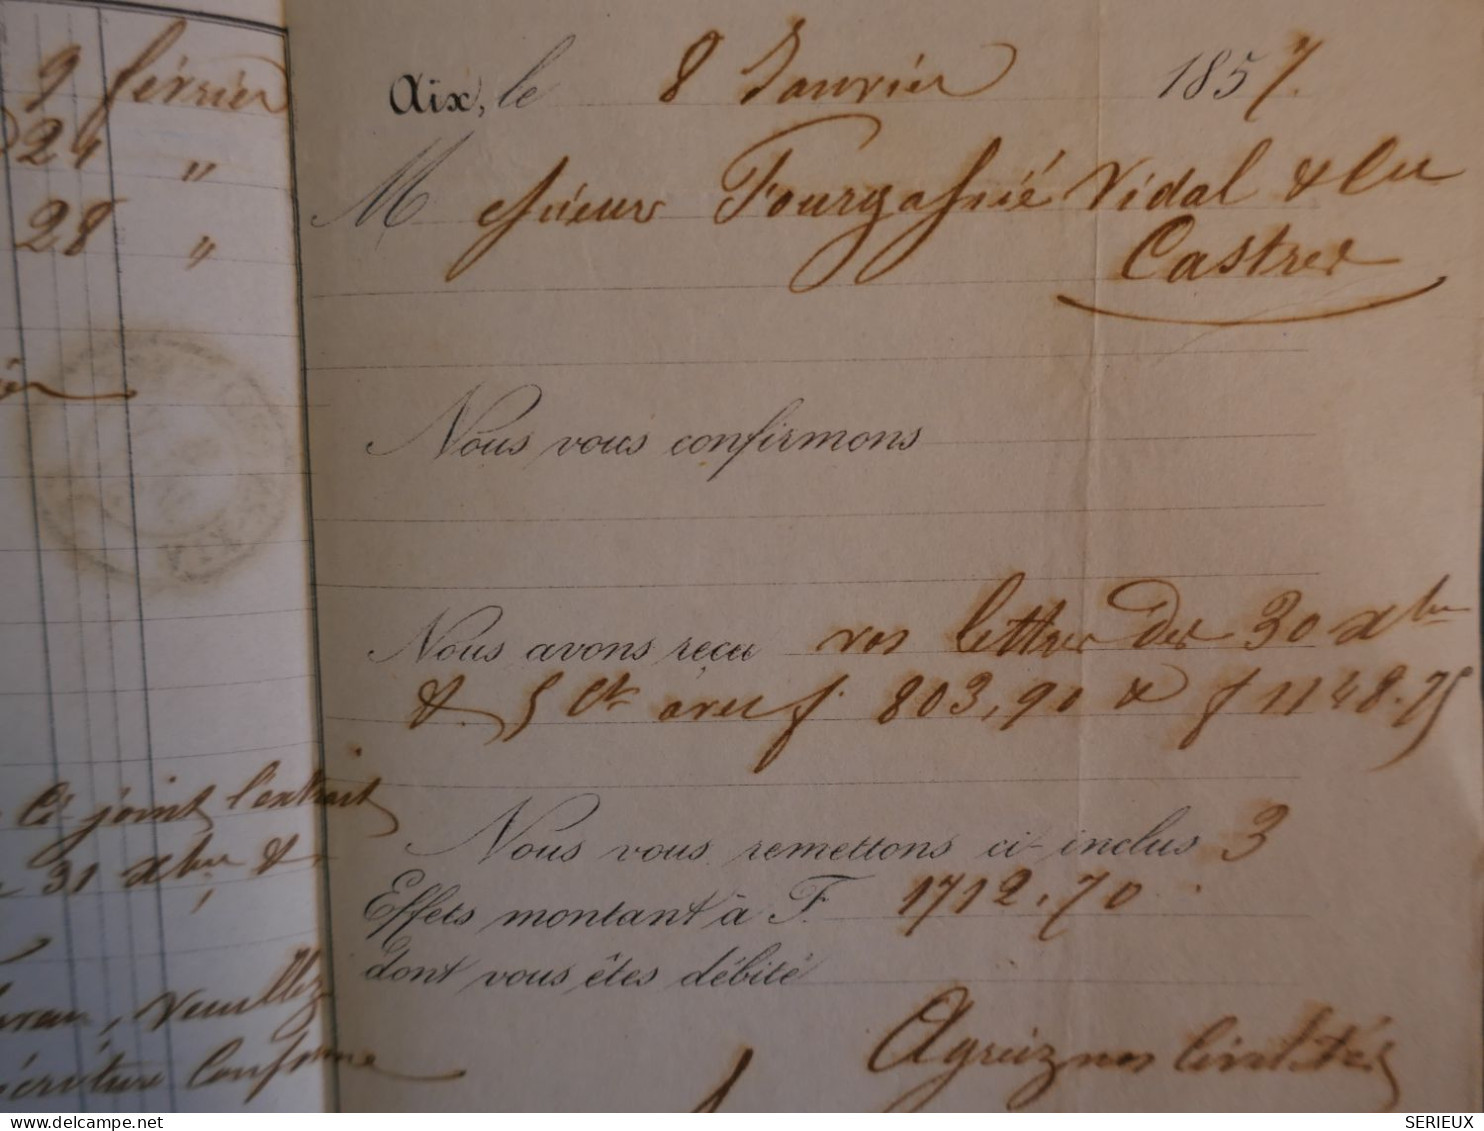 9 février
24 "
28 "
Ci joint l'extrait
31 xbre &
Veuillez
écriture conforme
Aix, le 8 Janvier 1857.
Messieurs Fourgassié Vidal & Cie
Castres
Nous vous confirmons
Nous avons reçu vos lettres des 30 xbre
& 5 Ct avec f. 803,90 & f 1148.75
Nous vous remettons ci-inclus 3
Effets montant à F. 1712.70
dont vous êtes débité
Agréez nos Civilités
SERIEUX